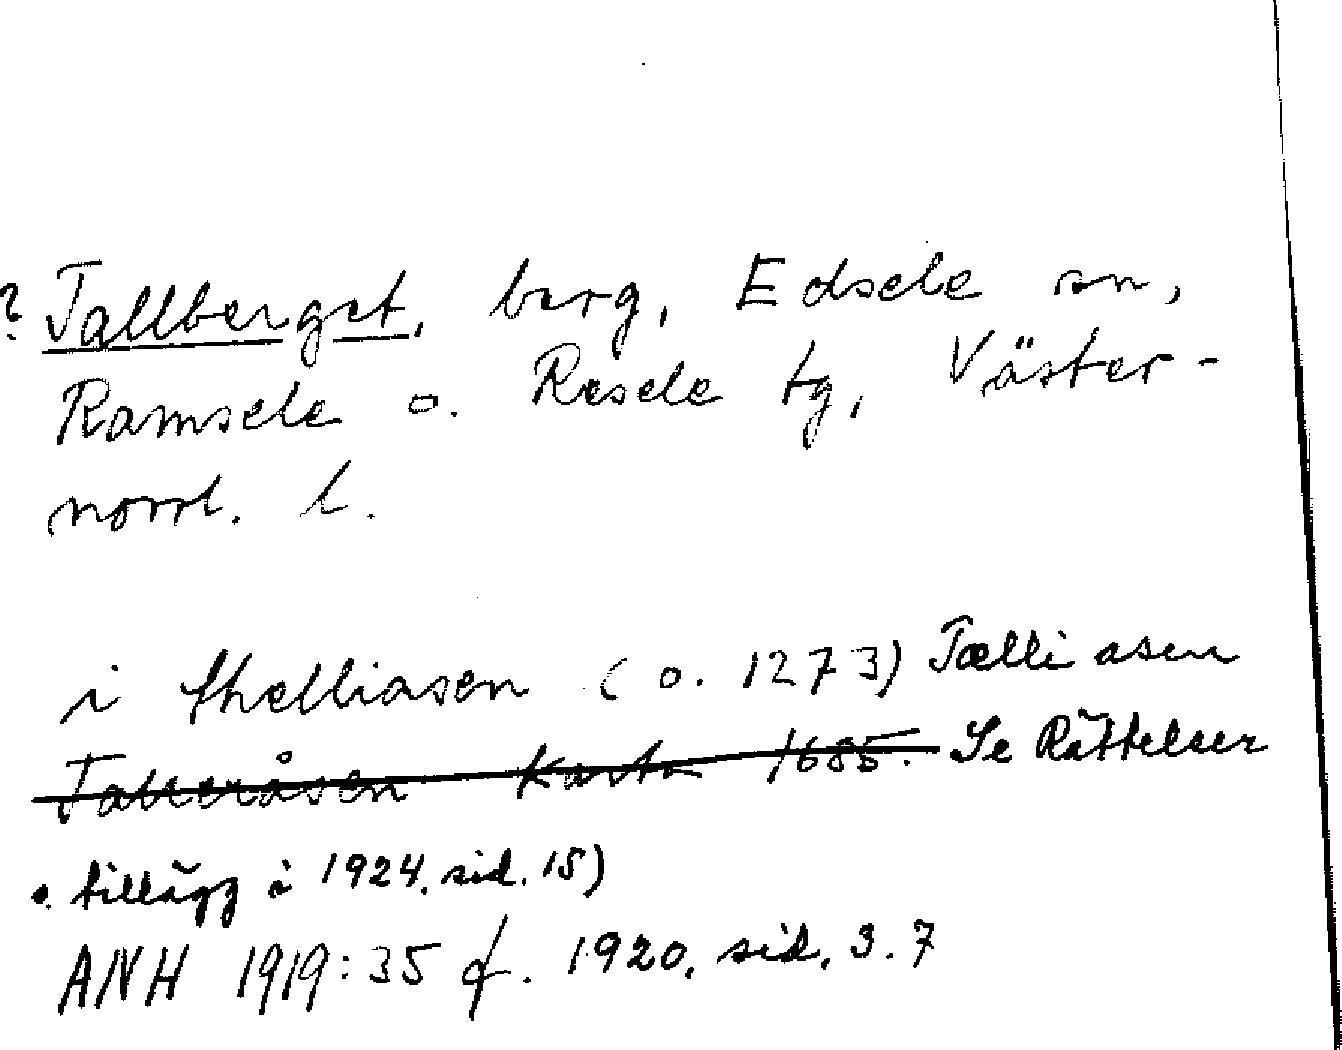 ? Tallberget, berg, Edsele sn,
Ramsele o. Resele tg, Väster-
norrl. l.
i thelliasen (o. 1273) Tælli asen
Tallråsen Karta 1685. Se Rättelser
o. tillägg i 1924, sid. 15)
ANH 1919:35 f. 1920, sid. 3.7